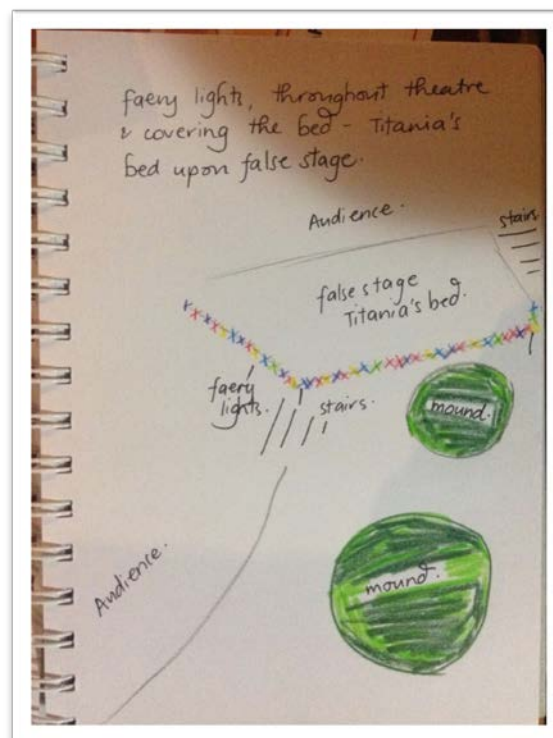 faery lights, throughout theatre
& covering the bed - Titania's
bed upon false stage.
Audience.
stairs
false stage
Titania's bed.
faery
lights.
stairs.
mound.
mound.
Audience.